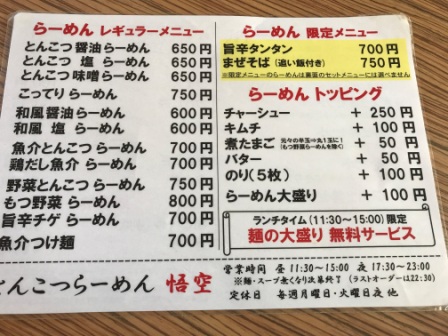 らーめん レギュラーメニュー
とんこつ醤油らーめん 650円
とんこつ 塩 らーめん 650円
とんこつ味噌らーめん 650円
こってり らーめん 750円
和風醤油らーめん 600円
和風 塩 らーめん 600円
魚介とんこつらーめん 700円
鶏だし魚介 らーめん 700円
野菜とんこつらーめん 750円
もつ野菜 らーめん 800円
旨辛チゲ らーめん 700円
魚介つけ麺 700円
らーめん 限定メニュー
旨辛タンタン 700円
まぜそば (追い飯付き) 750円
※限定メニューのらーめんは裏面のセットメニューには選べません
らーめん トッピング
チャーシュー + 250円
キムチ + 100円
煮たまご + 50円
バター + 50円
のり(5枚) + 100円
らーめん大盛り + 100円
ランチタイム(11:30~15:00)限定
麺の大盛り 無料サービス
とんこつらーめん 悟空
営業時間 昼 11:30~15:00 夜 17:30~23:00
※麺・スープ無くなり次第終了 (ラストオーダーは22:30)
定休日 毎週月曜日・火曜日夜 他